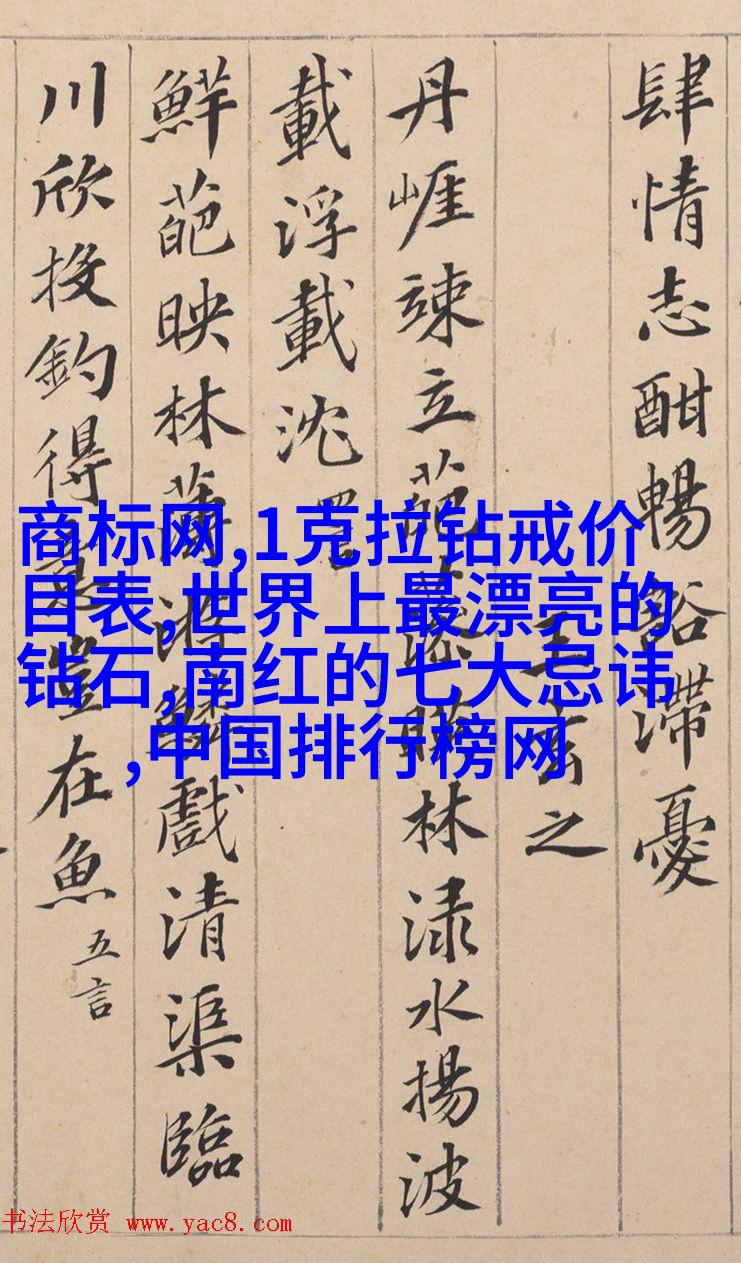 肆情志酣暢豁滯憂
王玄之
丹崕竦立葩藻暎林淥水揚波
載浮載沈 四
鮮葩映林薄游鱗戲清渠臨
川欣投釣得意豈在魚 五言
商标网,1克拉钻戒价
目表,世界上最漂亮的
钻石,南红的七大忌讳
,中国排行榜网
书法欣赏 www.yac8.com